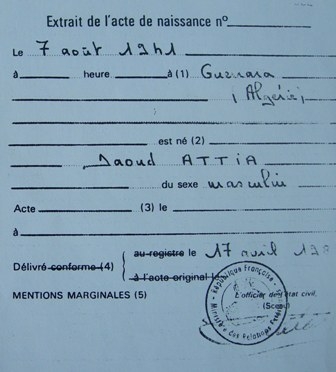 Extrait de l'acte de naissance n°
Le 7 août 1941
à heure à (1) Guerrara
(Algérie)
est né (2)
Daoud ATTIA
du sexe masculin
Acte (3) le
à
au registre le 17 avril
Délivré conforme (4)
à l'acte original le
MENTIONS MARGINALES (5)
L'officier de l'état civil,
(Sceau)
République Française